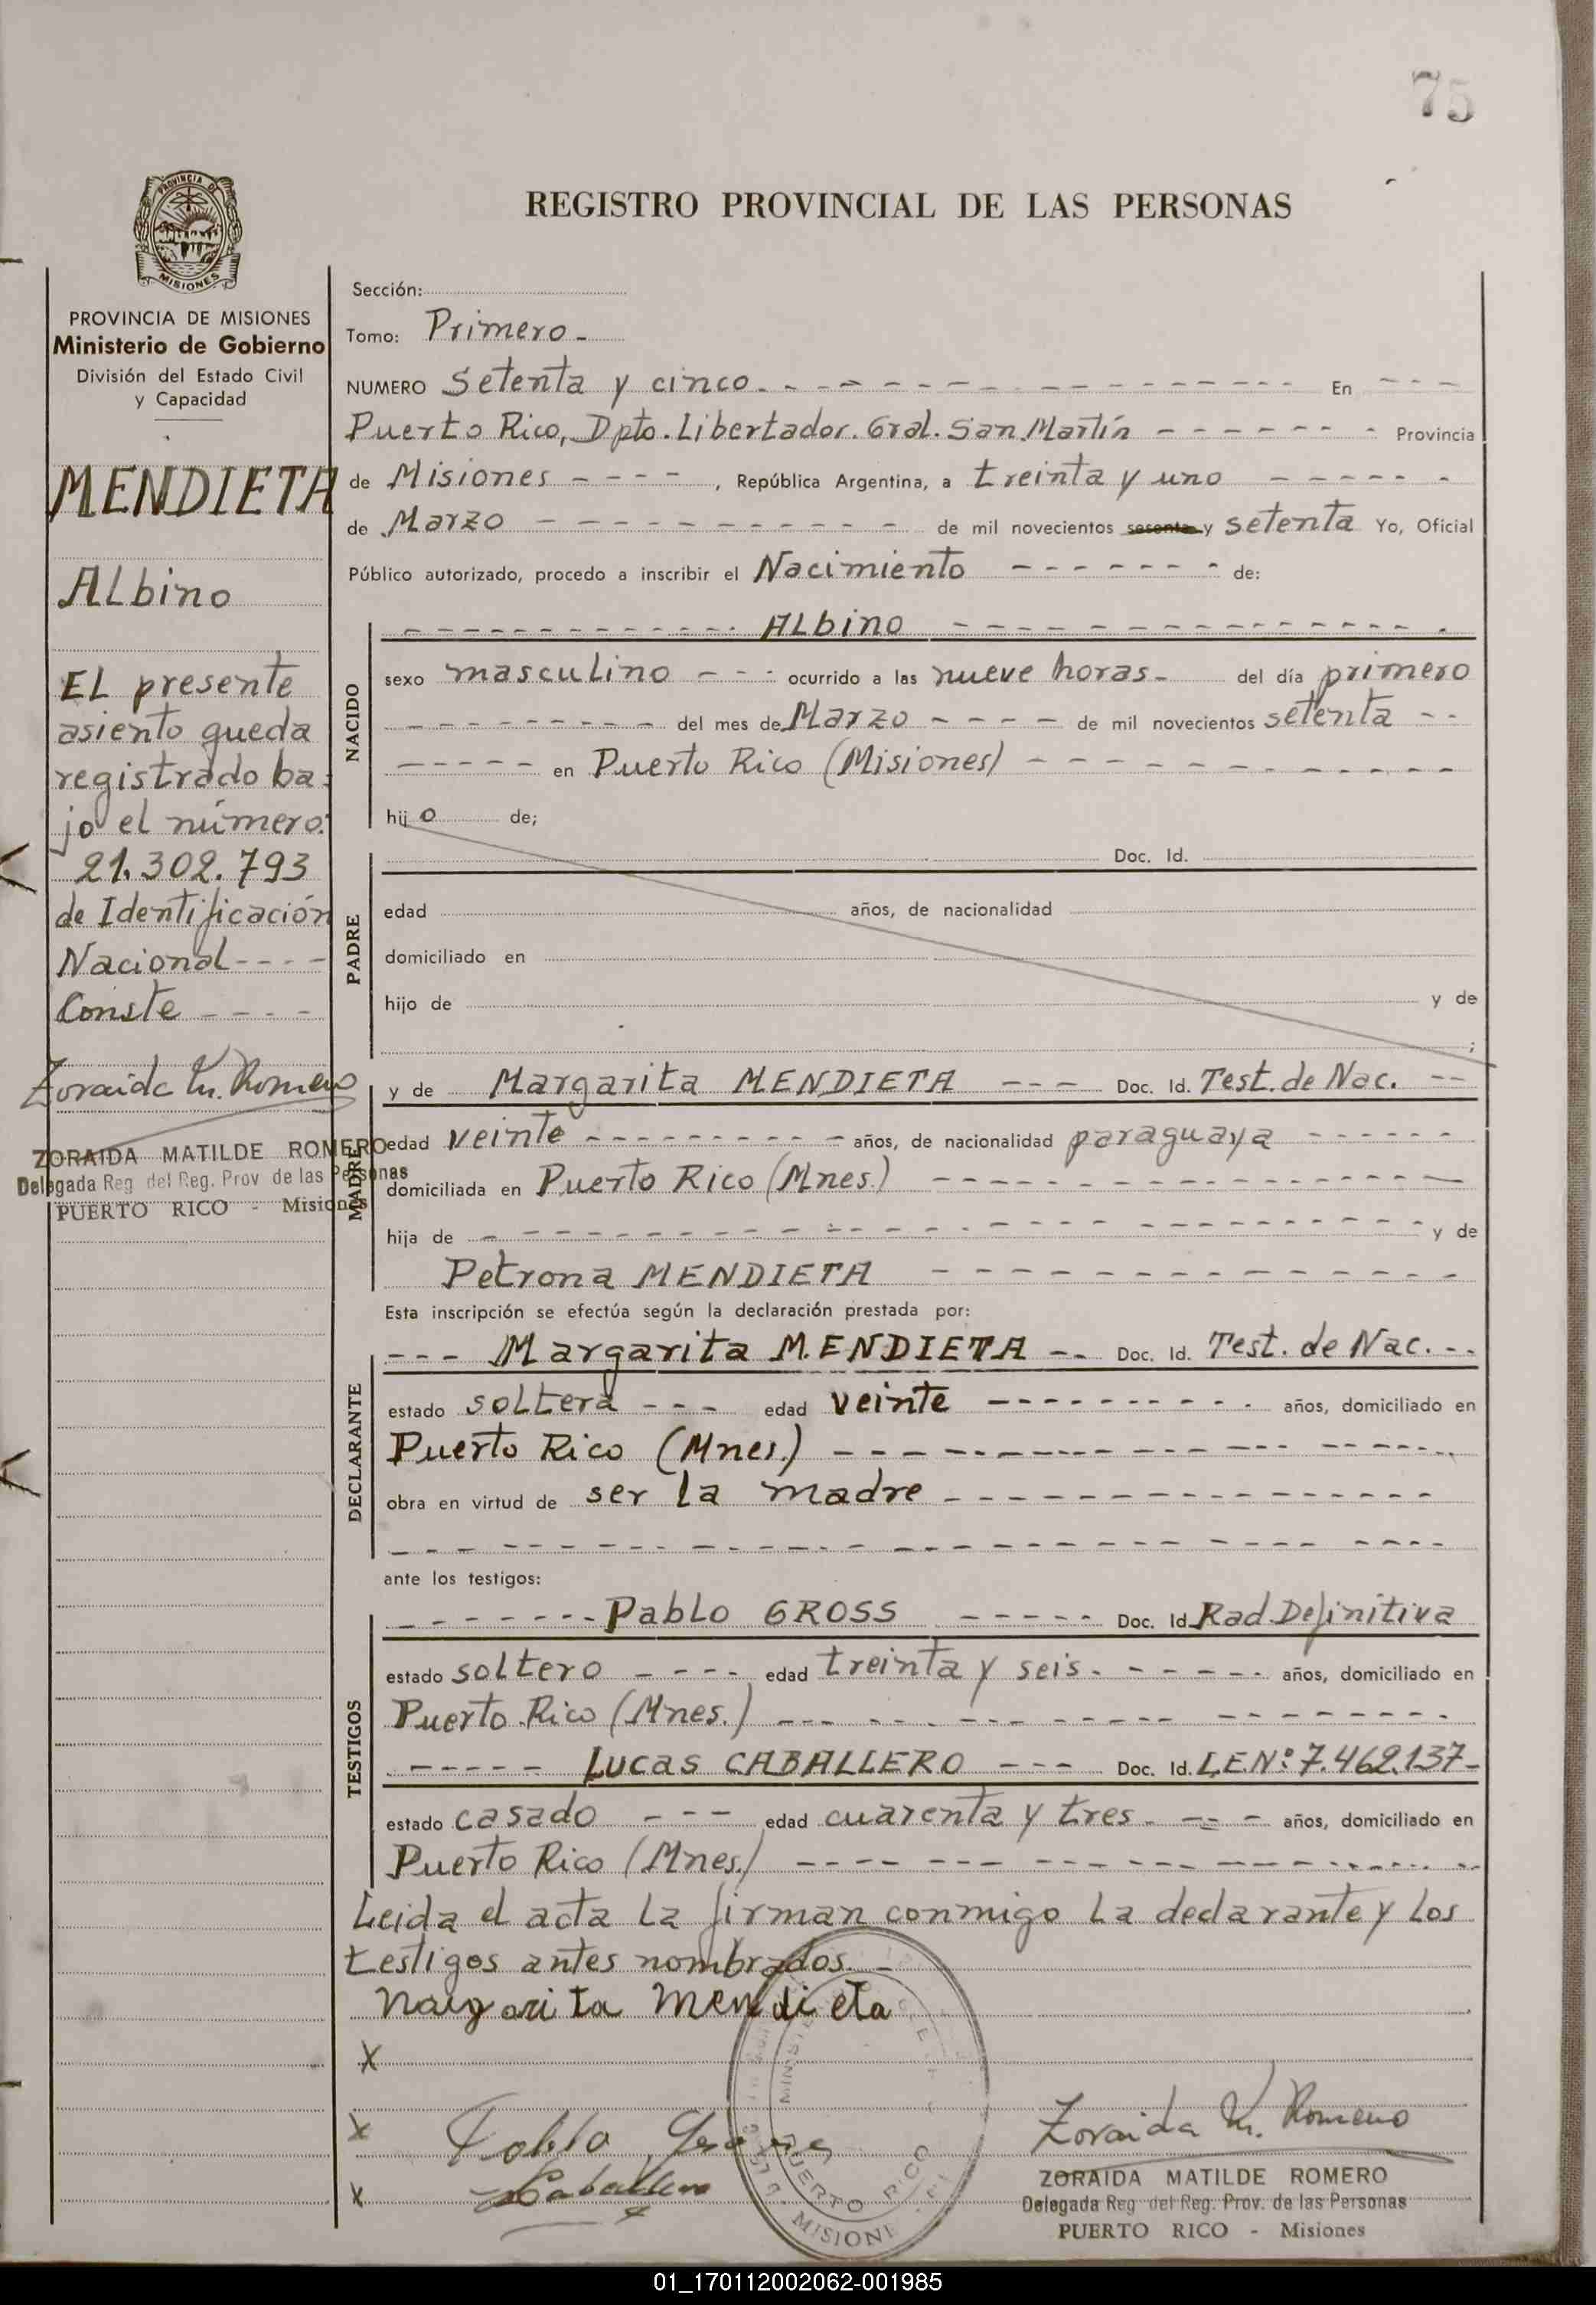 75
REGISTRO PROVINCIAL DE LAS PERSONAS
PROVINCIA DE
MISIONES
PROVINCIA DE MISIONES
Ministerio de Gobierno
División del Estado Civil
y Capacidad
MENDIETA
Albino
El presente
asiento queda
registrado ba
jo el número:
21.302.793
de Identificación
Nacional----
Conste ----
Zoraida M. Romero
ZORAIDA MATILDE ROMERO
Delegada Reg del Reg. Prov de las Personas
PUERTO RICO - Misiones
Sección:
Tomo: Primero -
NUMERO Setenta y cinco - - - - En - - -
Puerto Rico, Dpto. Libertador. Gral. San Martín - - - - Provincia
de Misiones - - - -, República Argentina, a treinta y uno - - - -
de Marzo - - - - de mil novecientos sesenta y setenta Yo, Oficial
Público autorizado, procedo a inscribir el Nacimiento - - - - de:
NACIDO
- - - - Albino - - - -
sexo masculino - - - ocurrido a las nueve horas - del día primero
- - - - del mes de Marzo - - - - de mil novecientos setenta - -
- - - - en Puerto Rico (Misiones) - - - -
hijo de;
PADRE
Doc. Id.
edad años, de nacionalidad
domiciliado en
hijo de y de
;
MADRE
y de Margarita MENDIETA - - - Doc. Id. Test. de Nac. - -
edad veinte - - - - años, de nacionalidad paraguaya - - - -
domiciliada en Puerto Rico (Mnes.) - - - -
hija de - - - - y de
Petrona MENDIETA - - - -
Esta inscripción se efectúa según la declaración prestada por:
DECLARANTE
- - - Margarita MENDIETA - - Doc. Id. Test. de Nac. - -
estado soltera - - - edad veinte - - - - años, domiciliado en
Puerto Rico (Mnes.) - - - -
obra en virtud de ser la madre - - - -
- - - -
ante los testigos:
TESTIGOS
- - - - Pablo GROSS - - - - Doc. Id. Rad. Definitiva
estado soltero - - - - edad treinta y seis - - - - años, domiciliado en
Puerto Rico (Mnes.) - - - -
- - - - Lucas CABALLERO - - - Doc. Id. L.E.Nº 7.462.137-
estado casado - - - edad cuarenta y tres - - - años, domiciliado en
Puerto Rico (Mnes.) - - - -
Leida el acta la firman conmigo la declarante y los
testigos antes nombrados. -
Margarita Mendieta
X
X Pablo Gross
X Caballero
PUERTO RICO
MISIONES
Zoraida M. Romero
ZORAIDA MATILDE ROMERO
Delegada Reg del Reg. Prov. de las Personas
PUERTO RICO - Misiones
01_170112002062-001985